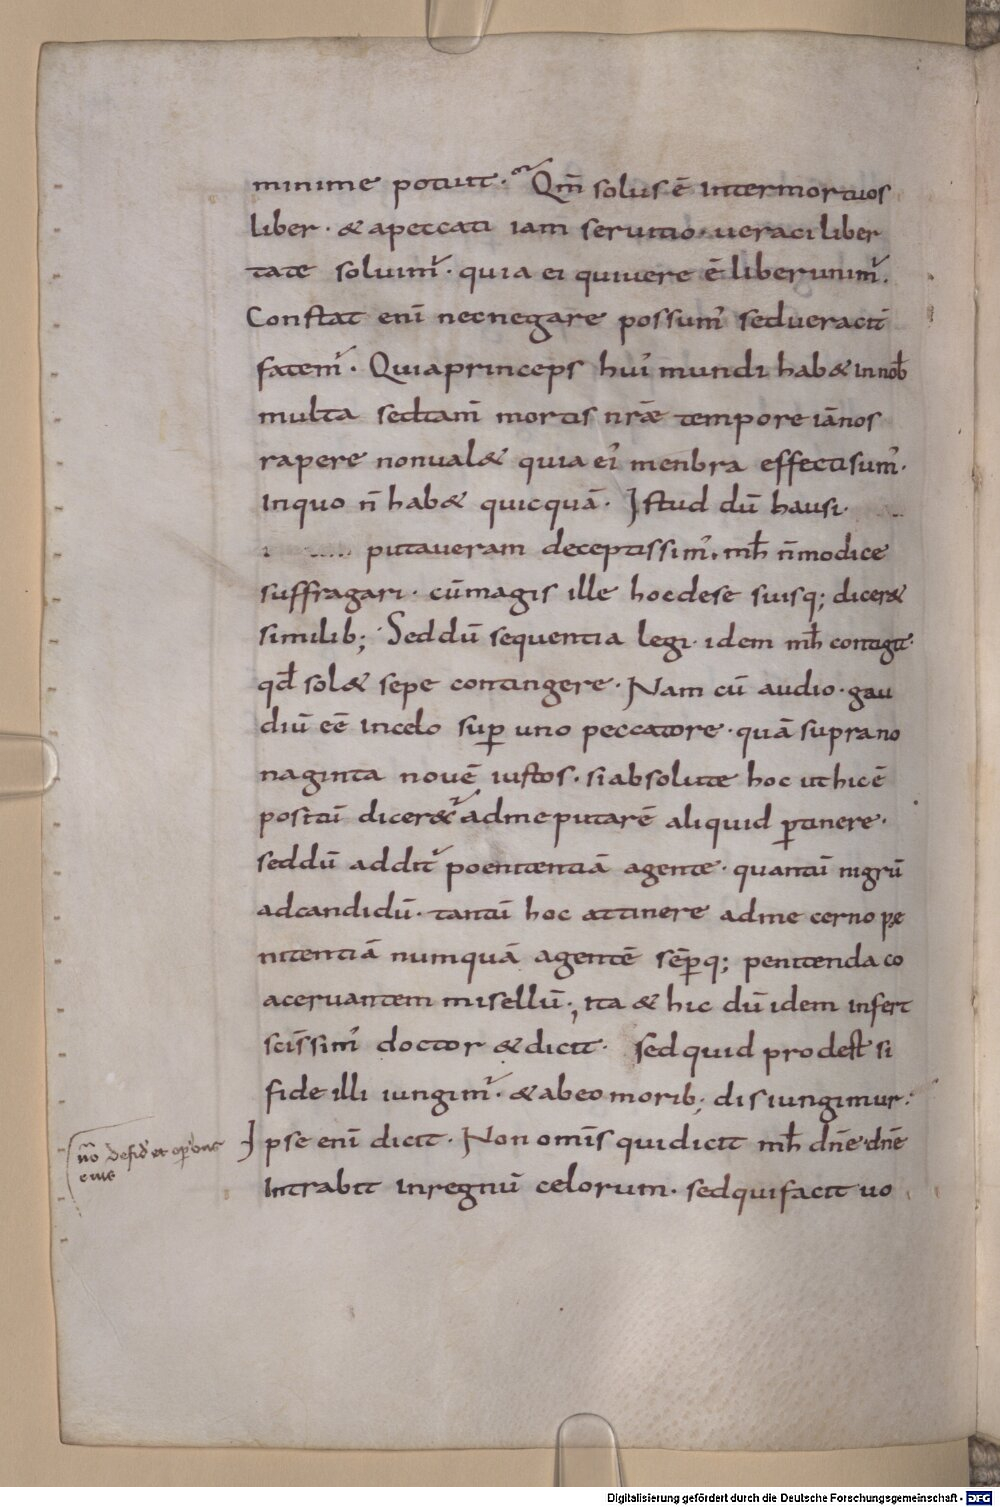 minime potuit · Qm̄ solus ē inter mortuos
liber · & a peccati iam seruitio · ueraci liber
tate soluimꝰ · quia ei qui uere ē liber unimꝰ.
Constat enī nec negare possumꝰ sed ueracit̄
fatemꝰ · Quia princeps huiꝰ mundi hab& in nob̄
multa sed tam̄ mortis nr̄ae tempore iā nos
rapere non ual& quia eiꝰ menbra effecti sumꝰ ·
In quo n̄ hab& quicquā · Istud dū hausi ·
putaueram deceptissimꝰ · mh̄ n̄ modice
suffragari · cū magis ille hoc de se suisq; dicer&
similib; Sed dū sequentia legi · idem mh̄ contigit ·
qd̄ sol& sepe contingere · Nam cū audio · gau
diū eē in celo suꝑ uno peccatore · quā supra no
naginta nouē iustos · si absolute hoc ut hic ē
positū dicer&ꝰ ad me putarē aliquid ꝑtinere ·
sed dū additꝰ poenitentiā agente · quantū nigrū
ad candidū · tantū hoc attinere ad me cerno pe
nitentiā numquā agentē sēꝑq; penitenda co
aceruantem misellū; ita & hic dū idem infert
scīssimꝰ doctor & dicit · sed quid prodest si
fide illi iungimꝰ · & ab eo morib; disiungimur ·
Ipse enī dicit · Non omīs qui dicit mh̄ dn̄e · dn̄e
nō de fid' et oꝑ'onꝰ
eius
Intrabit in regnū celorum · sed qui facit uo